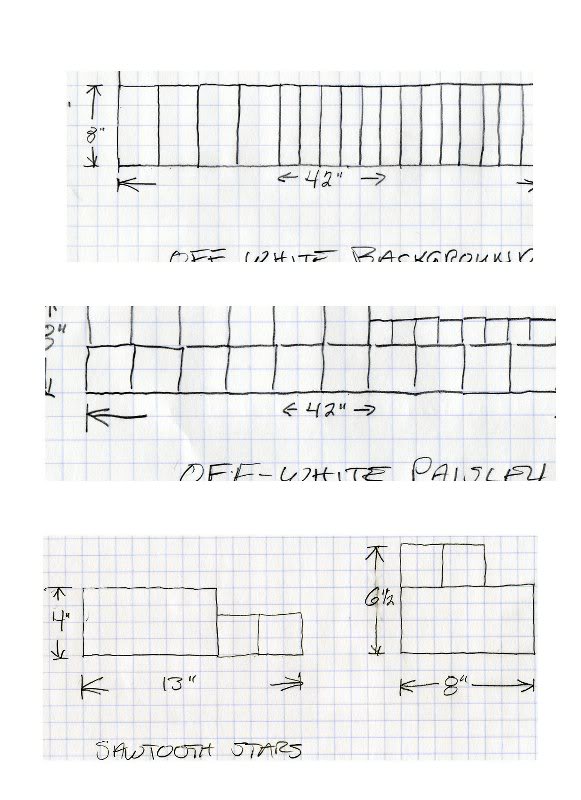 8"
42"
OFF WHITE BACKGROUND
3"
42"
OFF-WHITE PAISLEY
4"
13"
6 1/2
8"
SAWTOOTH STARS